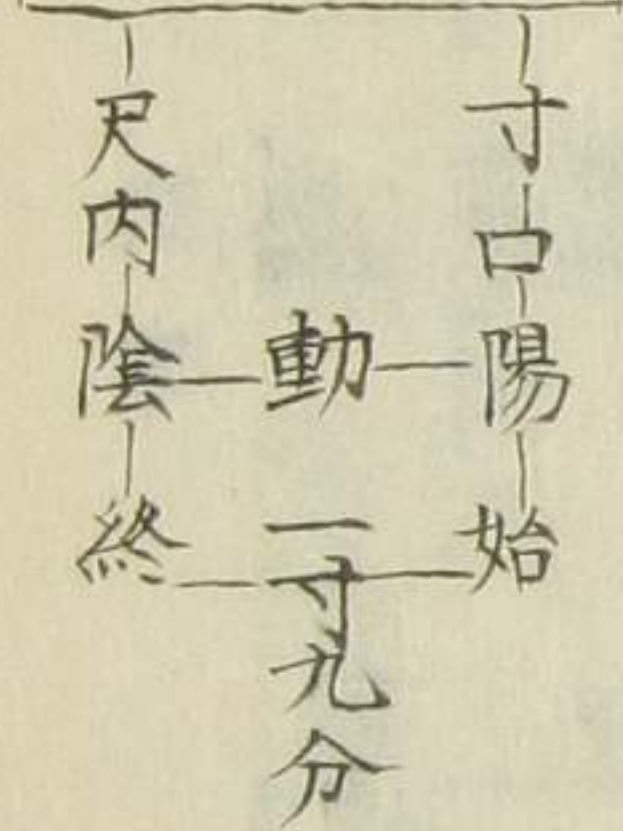 寸口陽始
動
一寸九分
尺內陰終